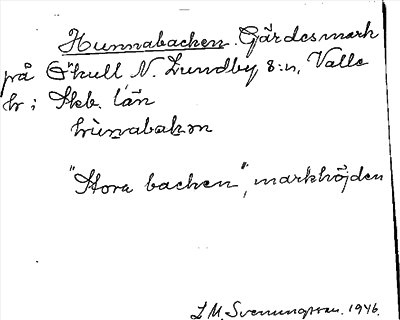 Hunnabacken. Gärdesmark
påÖkull N. Lundby s:n, Valle
hr; Skb. län
hùnabakɔn
"Stora backen", markhöjden
L M. Svenungsson. 1946.